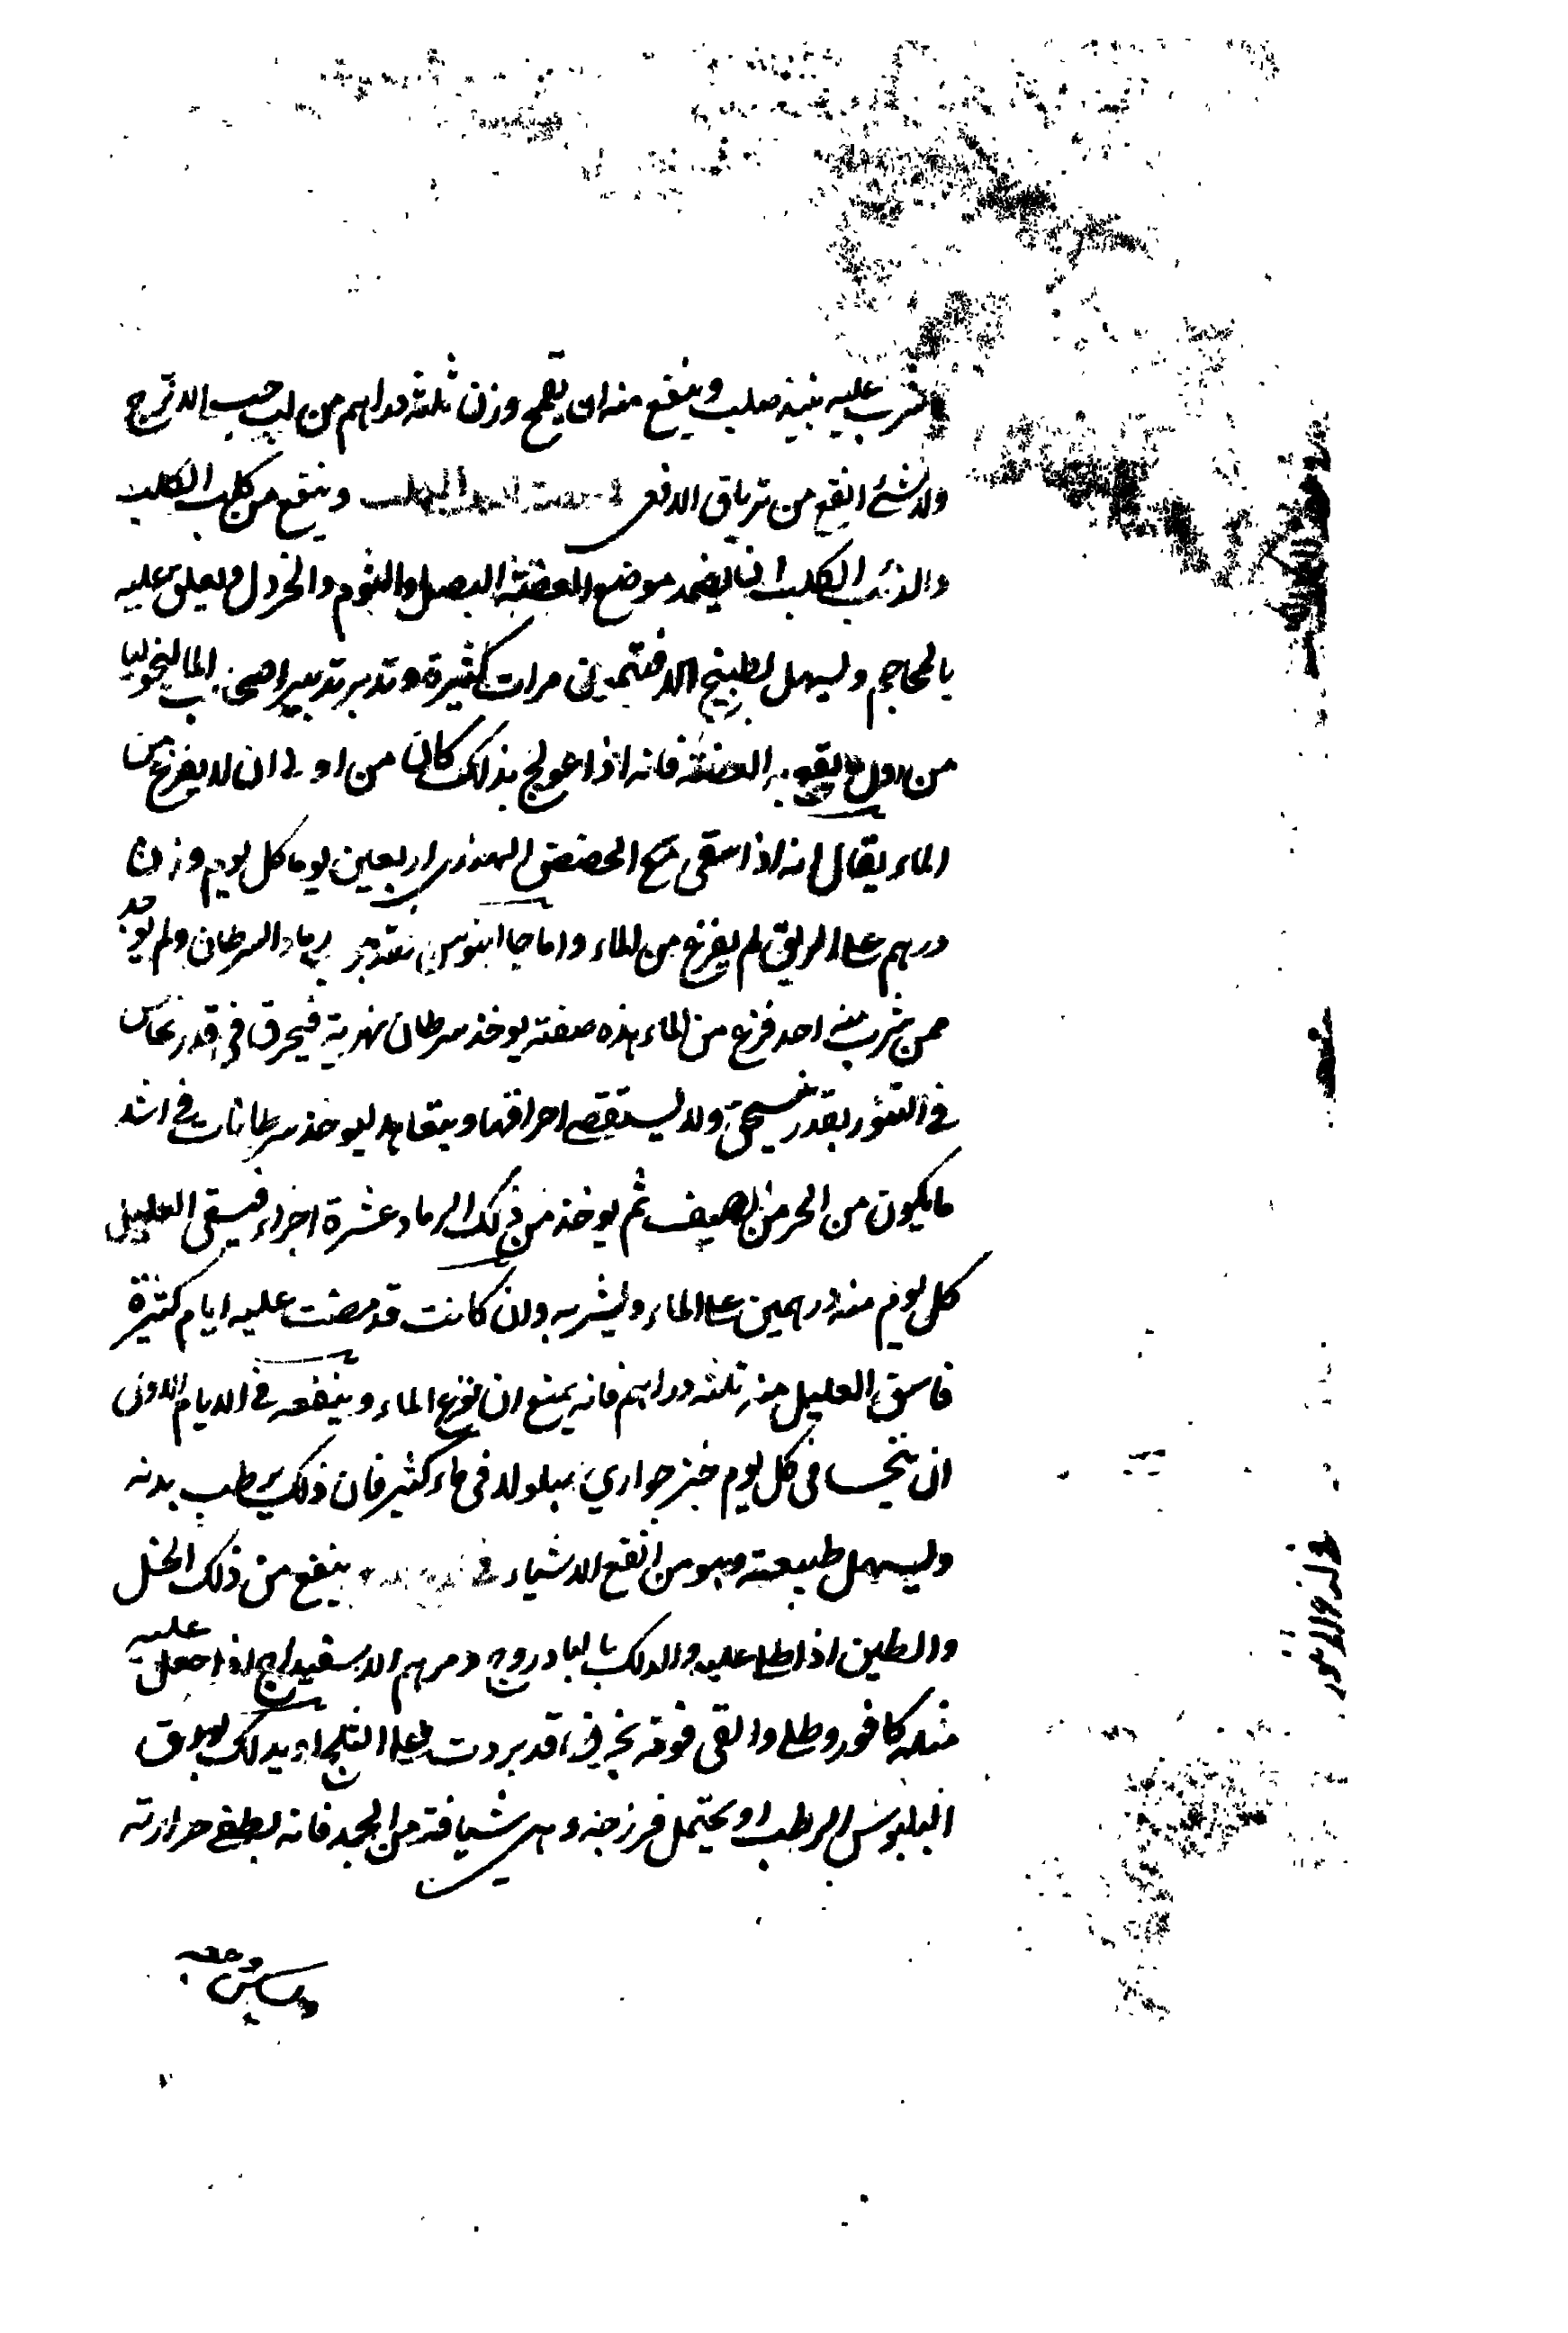 شرب عليه نبيذ صلب وينفع منه ان يقمح وزن ثلثة دراهم من لب حب الاترج
ولا شئ انفع من ترياق الافعى في وينفع من كلب الكلب
والذئب الكلب ان يضمد موضع العضة البصل والثوم والخردل ويعلق عليه
بالمحاجم ويسهل بطبيخ الافتيمون مرات كثيرة وتدبر تدبير اصحاب الماليخوليا
من اول العضة فانه اذا عولج بذلك كان من اولى ان لا يفزع من
الماء يقال انه اذا سقى مع الحضض الهندى اربعين يوما كل يوم وزن
درهم على الريق لم يفزع من الماء واما جالينوس برماد السرطان ولم يوجد
ممن شرب منه احد فزع من الماء هذه صفته يوخذ سرطان نهرية فيحرق في قدر نحاس
في التنور بقدر ولا يستقصى احراقها ويتعاهد ليوخذ سرطانات في اشد
ما يكون من الحر من الصيف ثم يوخذ من ذلك الرماد عشرة اجزاء فيسقى العليل
كل يوم منه درهمين على الماء وليشربه وان كانت قد مضت عليه ايام كثيرة
فاسق العليل منه ثلثة دراهم فانه يمنع ان يفزع الماء وينفعه في الايام الاولى
ان يتحسا في كل يوم خبز حواري مبلولا في ماء كثير فان ذلك يرطب بدنه
وليسهل طبيعته وهو من انفع الاشياء في ينفع من ذلك الخل
والطين اذا طلى عليه والدلك بالبادروج ومرهم الاسفيداج اذا جعل عليه
منه كافور وطلى والقى فوقه خرق قد بردت على الثلج او يدلك بورق
البلبوس الرطب او يحتمل فرزجه وهى شيافة من الجمد فانه يطفئ حرارته